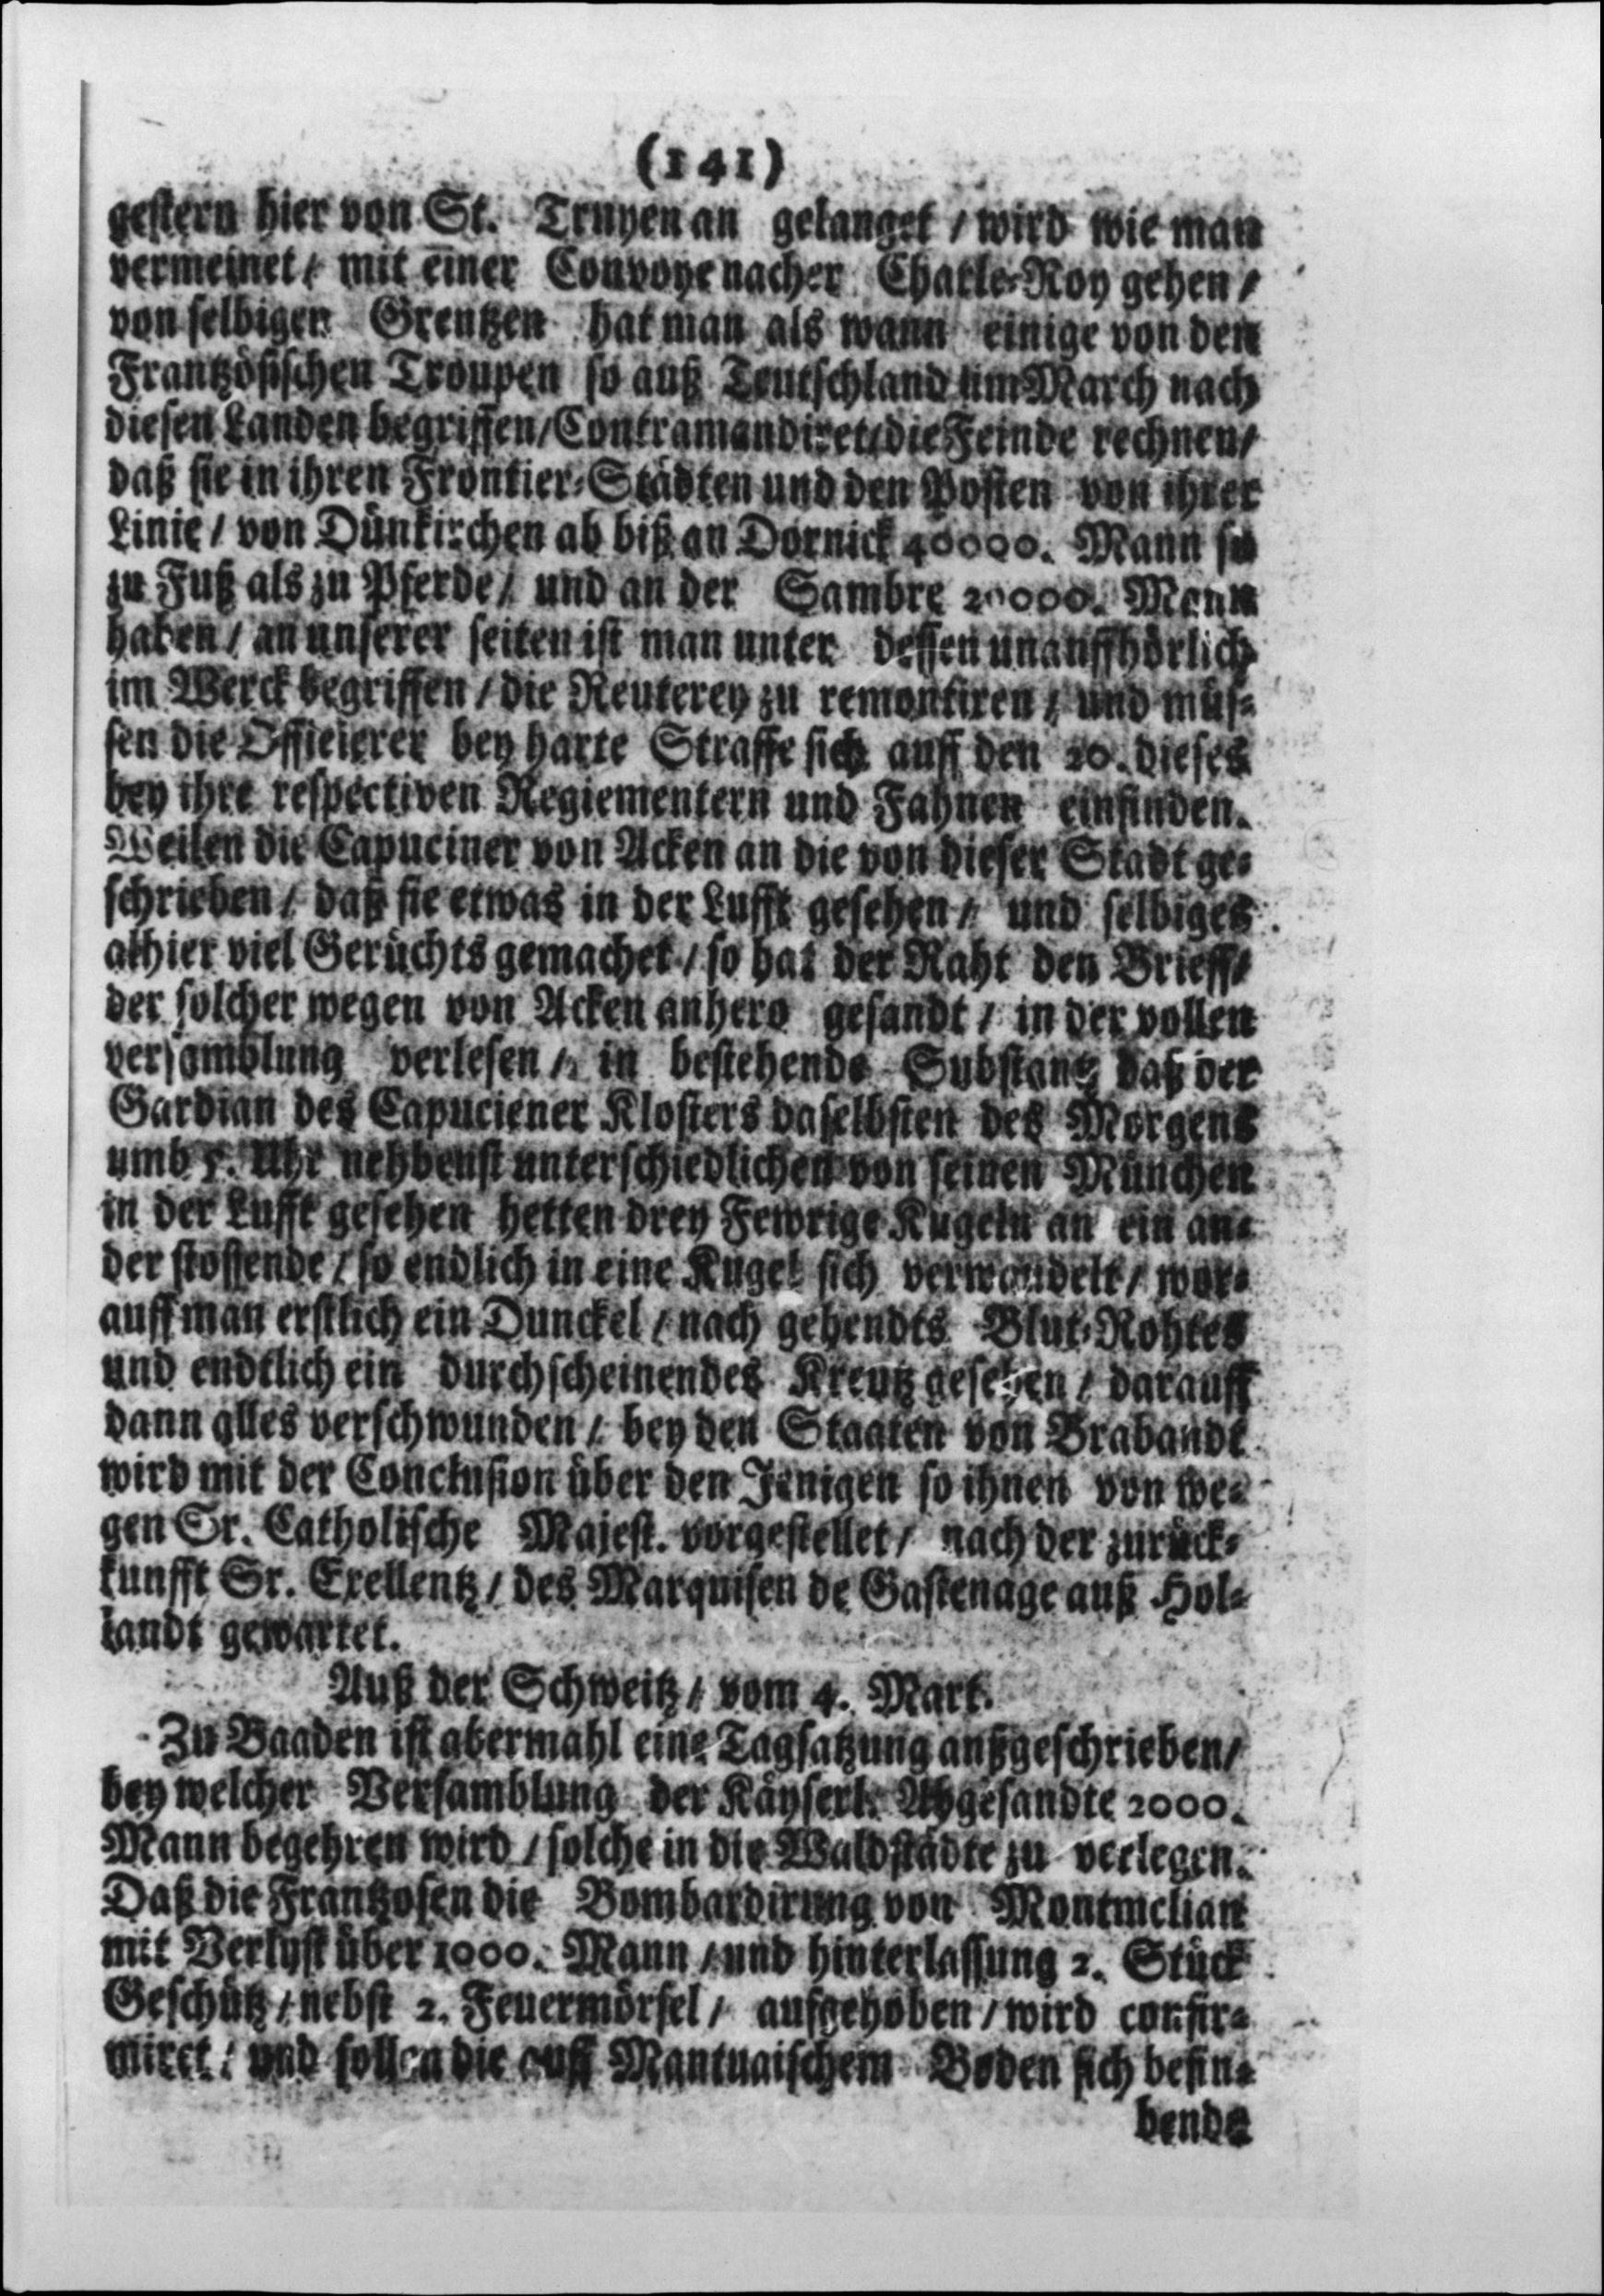 (141)
gestern hier von St. Truyen an gelanget / wird wie man
vermeinet / mit einer Convoye nacher Charle-Roy gehen /
von selbigen Grentzen hat man als wann einige von den
Frantzösischen Troupen so auß Teutschland im March nach
diesen Landen begriffen / Contramandiret / die Feinde rechnen /
daß sie in ihren Frontier-Städten und den Posten von ihrer
Linie / von Dünkirchen ab biß an Dornick 40000. Mann so
zu Fuß als zu Pferde / und an der Sambre 20000. Mann
haben / an unserer seiten ist man unter dessen unauffhörlich
im Werck begriffen / die Reuterey zu remontiren / und müs-
sen die Officierer bey harte Straffe sich auff den 20. dieses
bey ihre respectiven Regiementern und Fahnen einfinden.
Weilen die Capuciner von Acken an die von dieser Stadt ge-
schrieben / daß sie etwas in der Lufft gesehen / und selbiges
alhier viel Gerüchts gemachet / so hat der Raht den Brieff /
der solcher wegen von Acken anhero gesandt / in der vollen
versamblung verlesen / in bestehende Substantz daß der
Gardian des Capuciener Klosters daselbsten des Morgens
umb 5. Uhr nehbenst unterschiedlichen von seinen München
in der Lufft gesehen hetten drey Fewrige Kugeln an ein an-
der stossende / so endlich in eine Kugel sich verwandelt / wor-
auff man erstlich ein Dunckel / nach gehendts Blut-Rohtes
und endtlich ein durchscheinendes Kreutz gesehen / darauff
dann alles verschwunden / bey den Staaten von Brabandt
wird mit der Conclusion über den Jenigen so ihnen von we-
gen Sr. Catholische Majest. vorgestellet / nach der zurück-
kunfft Sr. Exellentz / des Marquisen de Gastenage auß Hol-
landt gewartet.
Auß der Schweitz / vom 4. Mart.
Zu Baaden ist abermahl eine Tagsatzung außgeschrieben /
bey welcher Versamblung der Käyserl. Abgesandte 2000.
Mann begehren wird / solche in die Waldstädte zu verlegen.
Daß die Frantzosen die Bombardirung von Montmelian
mit Verlust über 1000. Mann / und hinterlassung 2. Stück
Geschütz / nebst 2. Feuermörsel / aufgehoben / wird confir-
miret / und sollen die auff Mantuaischem Boden sich befin-
dende